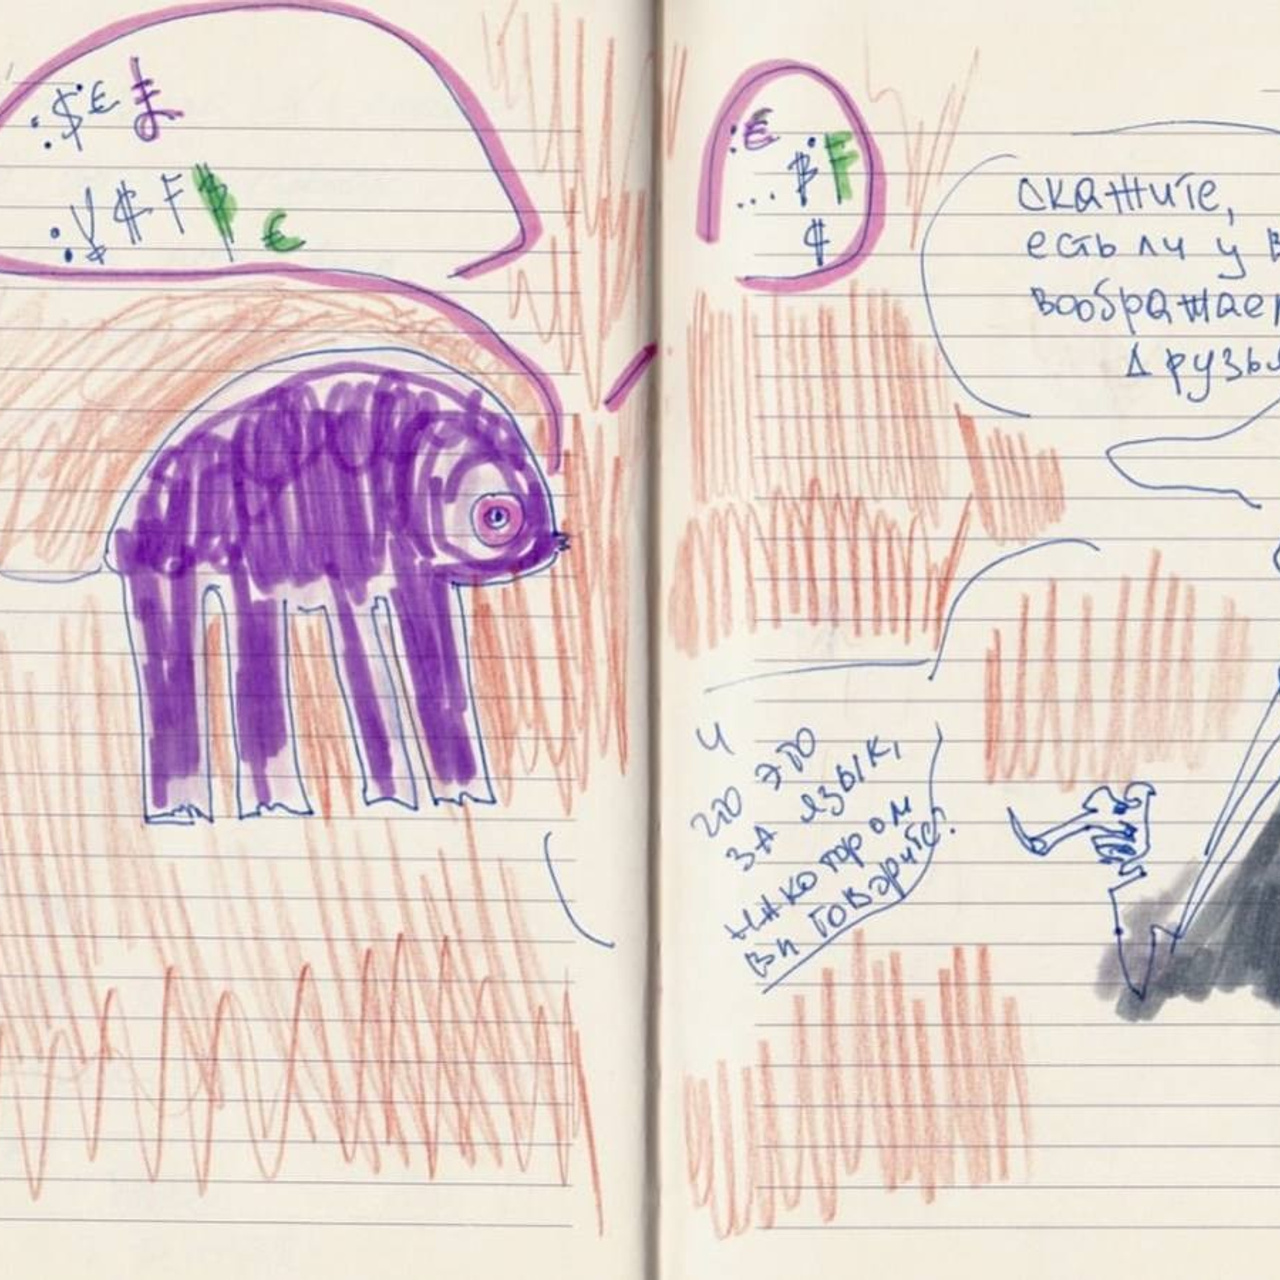 :$€
:¥₵F$€
:€
...$F
₵
скажите,
есть ли у в
воображае
друзья
Ч
то это
за язык,
на котором
вы говорите?